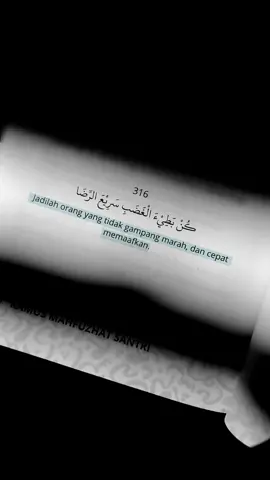 316
كُنْ بَطِيْءَ الْغَضَبِ سَرِيْعَ الرِّضَا
Jadilah orang yang tidak gampang marah, dan cepat
memaafkan.
MAHFUZHAT SANTRI